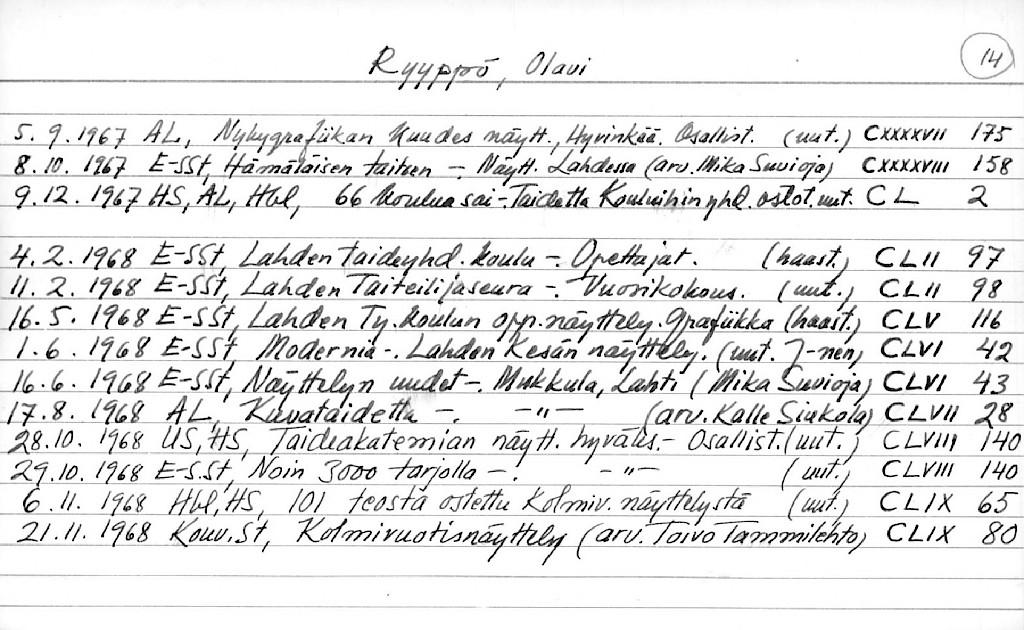 Ryyppö, Olavi
14
5. 9. 1967 AL, Nykygrafiikan Kuudes näytt., Hyvinkää. Osallist. (uut.) CXXXXVII 175
8. 10. 1967 E-SSt, Hämäläisen taiteen - Näytt. Lahdessa (arv. Mika Suvioja) CXXXXVIII 158
9. 12. 1967 HS, AL, Hbl, 66 koulua sai -. Taidetta Kouluihin yhd. ostot. uut. CL 2
4. 2. 1968 E-SSt, Lahden taideyhd. koulu -. Opettajat. (haast.) CLII 97
11. 2. 1968 E-SSt, Lahden Taiteilijaseura -. Vuosikokous. (uut.) CLII 98
16. 5. 1968 E-SSt, Lahden Ty. koulun opp. näyttely. Grafiikka (haast.) CLV 116
1. 6. 1968 E-SSt, Modernia -. Lahden Kesän näyttely. (uut. J-nen) CLVI 42
16. 6. 1968 E-SSt, Näyttelyn uudet -. Mukkula, Lahti (Mika Suvioja) CLVI 43
17. 8. 1968 AL, Kuvataidetta -. -"- (arv. Kalle Siukola) CLVII 28
28. 10. 1968 US, HS, Taideakatemian näytt. hyväks. - Osallist. (uut.) CLVIII 140
29. 10. 1968 E-SSt, Noin 3000 tarjolla -. -"- (uut.) CLVIII 140
6. 11. 1968 Hbl, HS, 101 teosta ostettu Kolmiv. näyttelystä (uut.) CLIX 65
21. 11. 1968 Kouv. St, Kolmivuotisnäyttely (arv. Toivo Tammilehto) CLIX 80